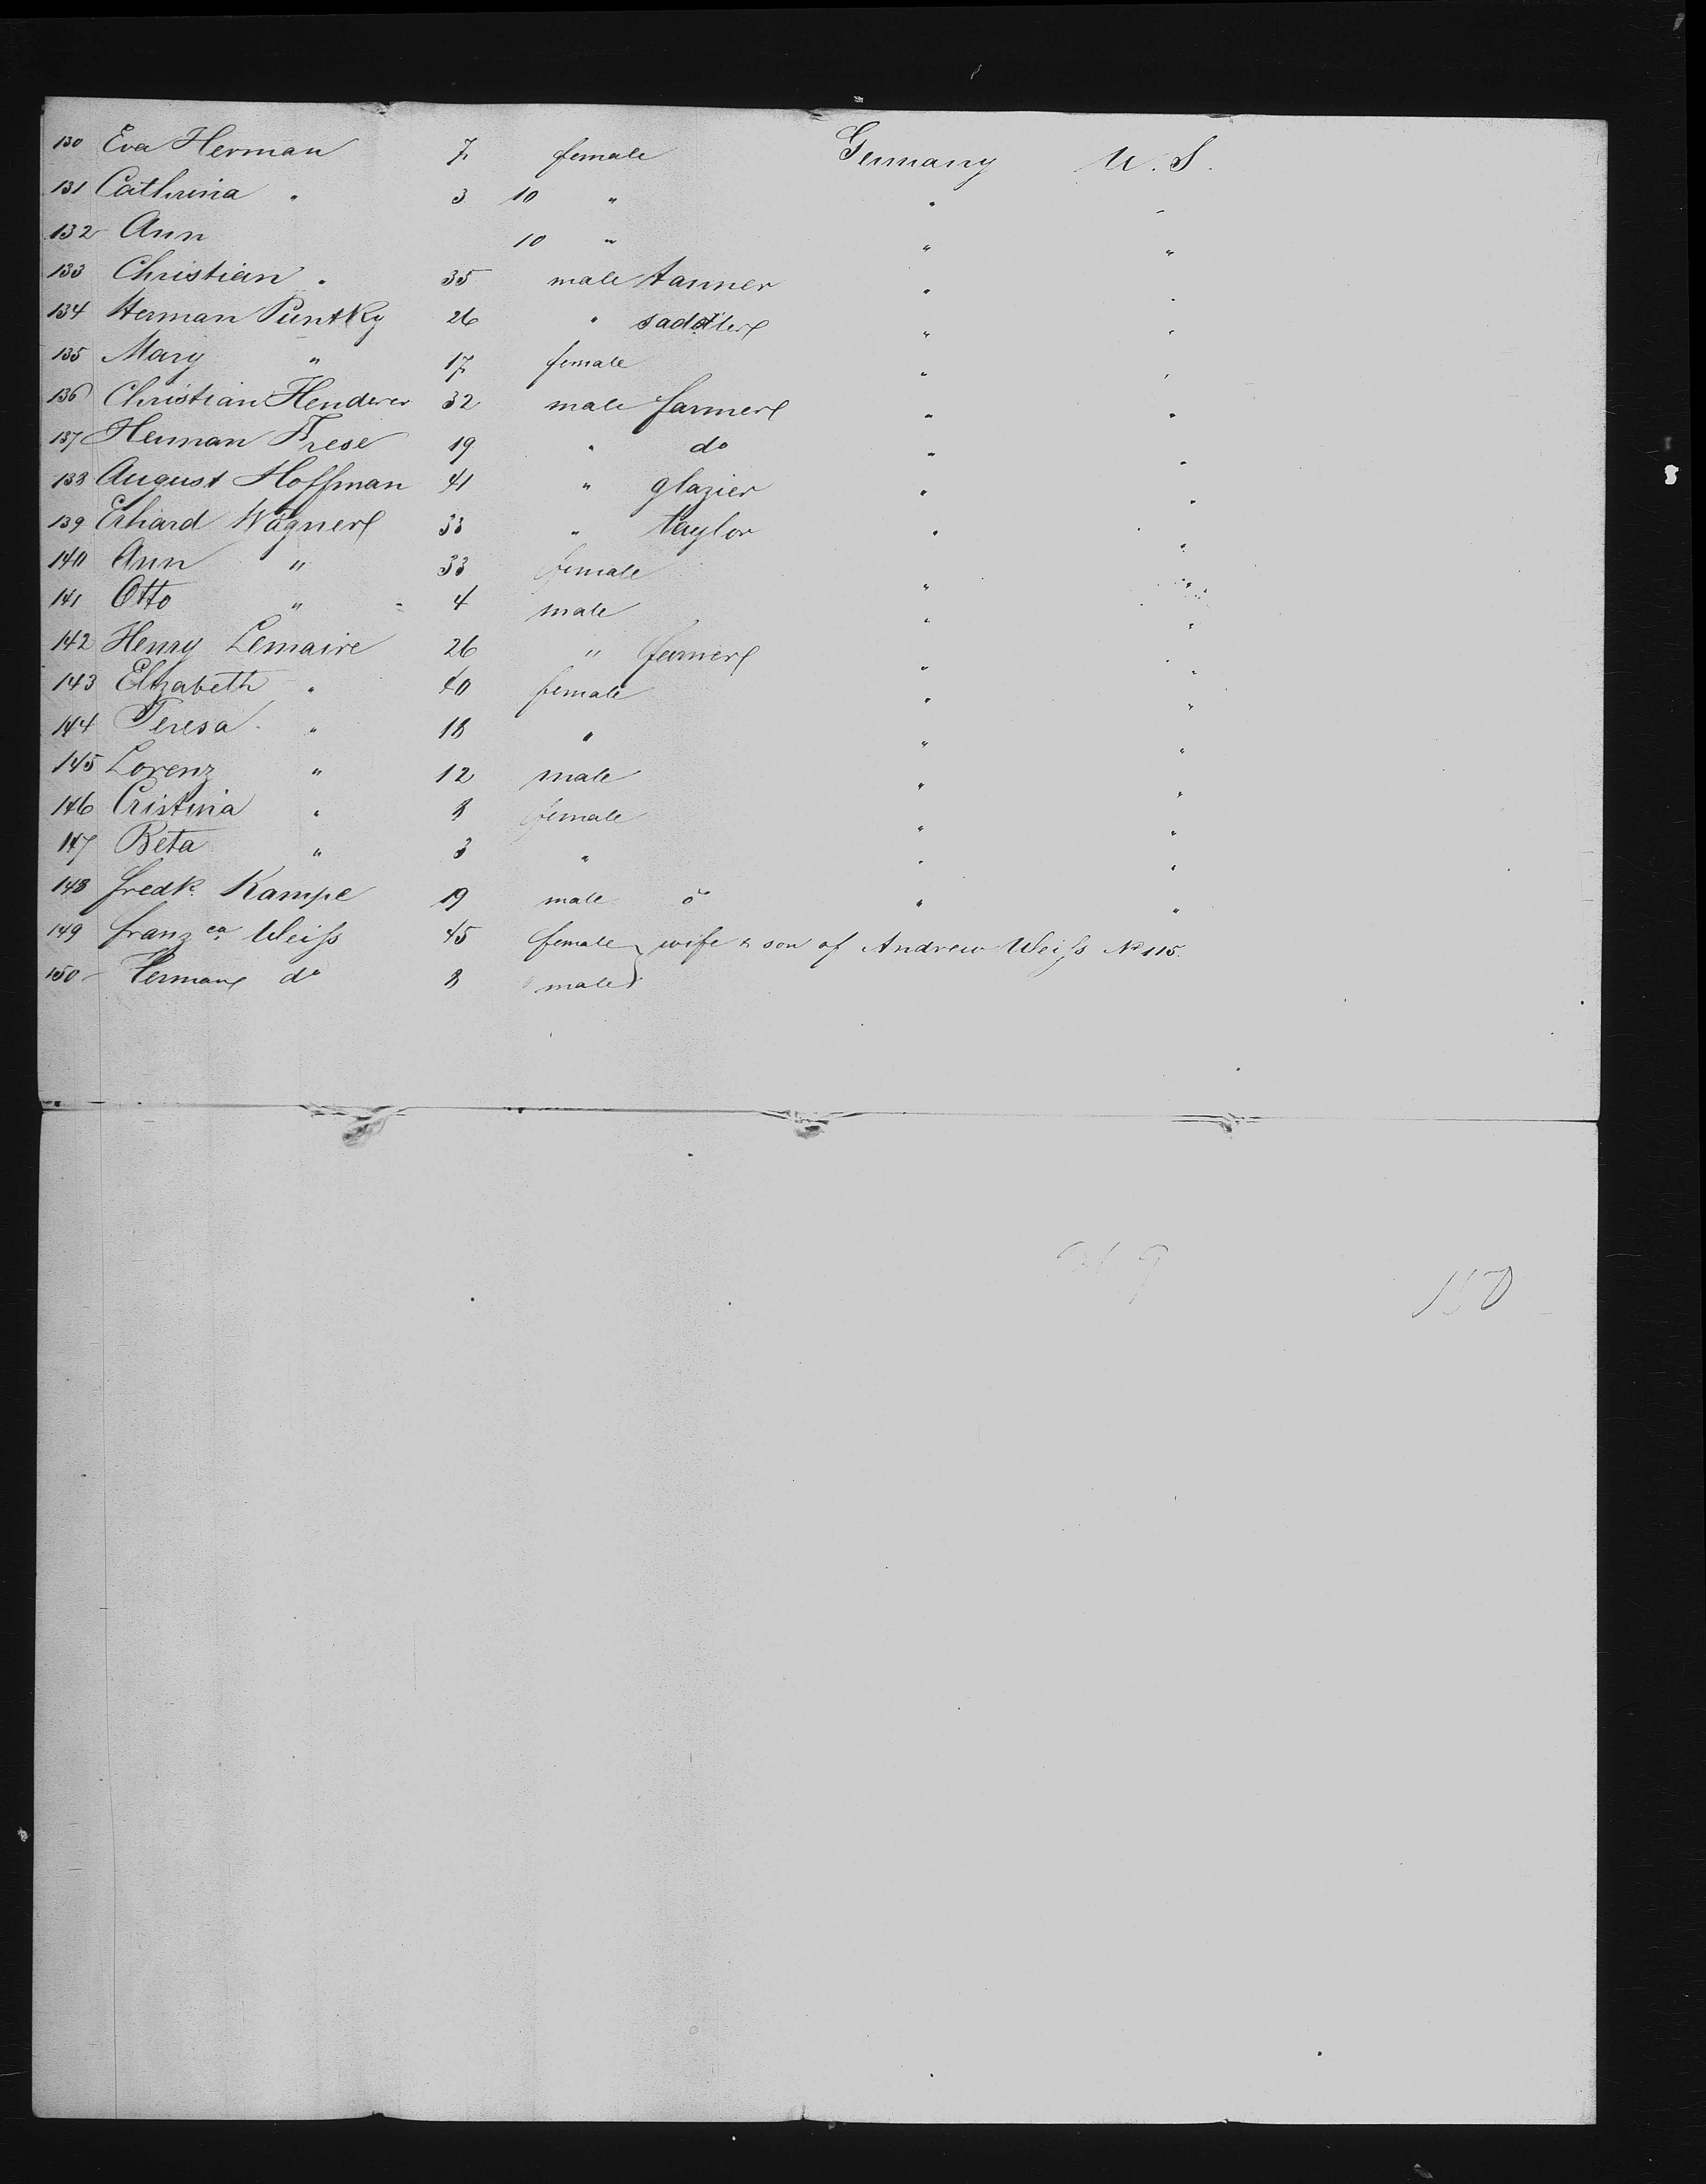 130 Eva Herman 7 female Germany U.S.
131 Cathrina " 3 10 " " "
132 Ann 10 " " "
133 Christian " 35 male tanner " "
134 Herman Puntky 26 " saddler " "
135 Mary " 17 female " "
136 Christian Henderer 32 male farmer " "
137 Herman Frese 19 " do " "
138 August Hoffman 41 " glazier " "
139 Erhard Wagner 33 " taylor " "
140 Ann " 33 female " "
141 Otto " 4 male " "
142 Henry Lemaire 26 " farmer " "
143 Elizabeth " 40 female " "
144 Teresa " 18 " " "
145 Lorenz " 12 male " "
146 Cristina " 8 female " "
147 Beta " 3 " " "
148 Fredk. Kampe 19 male o " "
149 Franzca Weiss 45 female wife & son of Andrew Weiss No 115.
150 Herman do 8 male
150